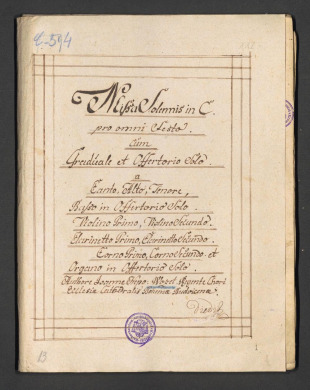 E-594
Missa Solemnis in C.
pro omni Festo.
cum
Graduale et Offertorio Solo.
a
Canto, Alto, Tenore,
Basso in Offertorio Solo.
Violino Primo, Violino Secundo.
Clarinetto Primo, Clarinetto Secundo.
Corno Primo, Corno Secundo. et
Organo in Offertorio Solo.
Authore Joanne Nepo: Regente Chori
Ecclesiæ Cathedralis